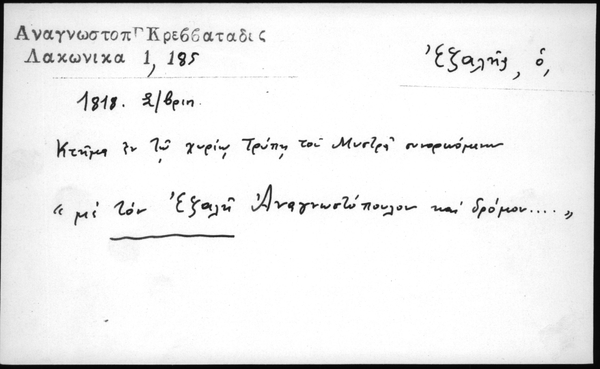 Αναγνωστοπ Γ Κρεββαταδις
Λακωνικα 1, 185
Ἐξαλῆς, ὁ,
1818. 8/βρίῃ.
Κτῆμα ἐν τῷ χωρίῳ Τρύπῃ τοῦ Μυστρᾶ συνορευόμενον
“ μὲ τὸν Ἐξαλῆ Ἀναγνωστόπουλον καὶ δρόμον.... ”